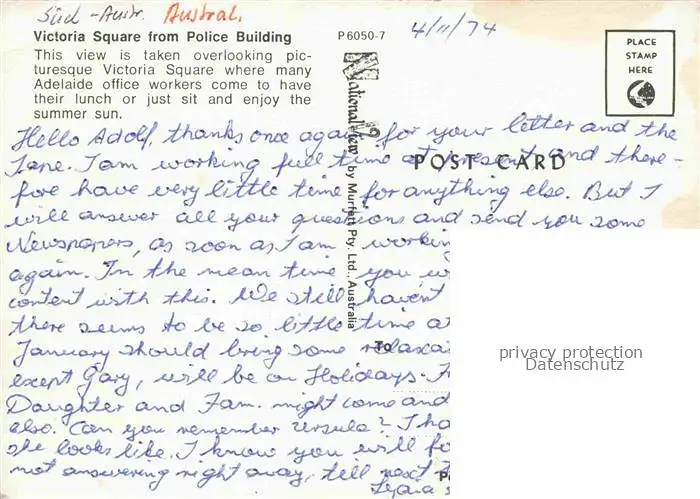 Süd-Austr. Austral.
Victoria Square from Police Building
This view is taken overlooking pic-
turesque Victoria Square where many
Adelaide office workers come to have
their lunch or just sit and enjoy the
summer sun.
P6050-7
4/11/74
PLACE
STAMP
HERE
National View by Murfett Pty. Ltd., Australia
POST CARD
Hello Adolf, thanks once again for your letter and the
Tape. I am working full time at present and there-
fore have very little time for anything else. But I
will answer all your questions and send you some
Newspapers, as soon as I am working
again. In the mean time you
content with this. We still haven't
there seems to be so little time
January should bring some
except Gary, will be on Holidays.
Daughter and Fam. might come and
also. Can you remember Ursula? I
she looks like. I know you will
not answering right away, till next
To
privacy protection
Datenschutz